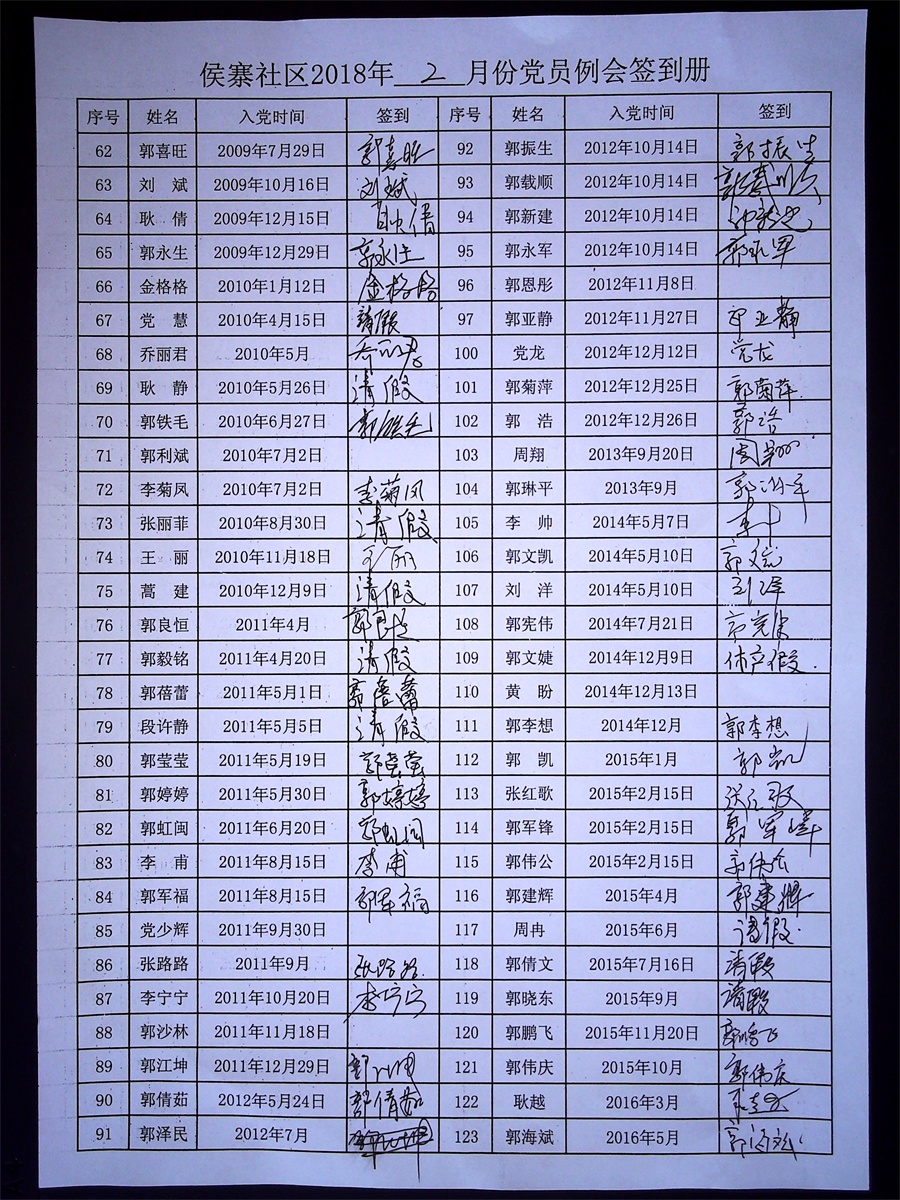 侯寨社区2018年 2 月份党员例会签到册
序号 姓名 入党时间 签到 序号 姓名 入党时间 签到
62 郭喜旺 2009年7月29日 郭喜旺 92 郭振生 2012年10月14日 郭振生
63 刘 斌 2009年10月16日 刘斌 93 郭载顺 2012年10月14日
64 耿 倩 2009年12月15日 耿倩 94 郭新建 2012年10月14日
65 郭永生 2009年12月29日 郭永生 95 郭永军 2012年10月14日 郭永军
66 金格格 2010年1月12日 金格格 96 郭恩彤 2012年11月8日
67 党 慧 2010年4月15日 請假 97 郭亚静 2012年11月27日 郭亚静
68 乔丽君 2010年5月 乔丽君 100 党龙 2012年12月12日 党龙
69 耿 静 2010年5月26日 请假 101 郭菊萍 2012年12月25日 郭菊萍
70 郭铁毛 2010年6月27日 郭铁毛 102 郭 浩 2012年12月26日 郭浩
71 郭利斌 2010年7月2日 103 周翔 2013年9月20日 周翔
72 李菊凤 2010年7月2日 李菊凤 104 郭琳平 2013年9月 郭琳平
73 张丽菲 2010年8月30日 请假 105 李 帅 2014年5月7日 李帅
74 王 丽 2010年11月18日 王丽 106 郭文凯 2014年5月10日 郭文凯
75 蒿 建 2010年12月9日 请假 107 刘 洋 2014年5月10日 刘洋
76 郭良恒 2011年4月 郭良恒 108 郭宪伟 2014年7月21日 郭宪伟
77 郭毅铭 2011年4月20日 请假 109 郭文婕 2014年12月9日 休产假
78 郭蓓蕾 2011年5月1日 郭蓓蕾 110 黄 盼 2014年12月13日
79 段许静 2011年5月5日 请假 111 郭李想 2014年12月 郭李想
80 郭莹莹 2011年5月19日 郭莹莹 112 郭 凯 2015年1月 郭凯
81 郭婷婷 2011年5月30日 郭婷婷 113 张红歌 2015年2月15日 张红歌
82 郭虹闽 2011年6月20日 郭虹闽 114 郭军锋 2015年2月15日 郭军锋
83 李 甫 2011年8月15日 李甫 115 郭伟公 2015年2月15日 郭伟公
84 郭军福 2011年8月15日 郭军福 116 郭建辉 2015年4月 郭建辉
85 党少辉 2011年9月30日 117 周冉 2015年6月 请假
86 张路路 2011年9月 张路路 118 郭倩文 2015年7月16日 请假
87 李宁宁 2011年10月20日 李宁宁 119 郭晓东 2015年9月 请假
88 郭沙林 2011年11月18日 120 郭鹏飞 2015年11月20日 郭鹏飞
89 郭江坤 2011年12月29日 郭江坤 121 郭伟庆 2015年10月 郭伟庆
90 郭倩茹 2012年5月24日 郭倩茹 122 耿越 2016年3月 耿越
91 郭泽民 2012年7月 123 郭海斌 2016年5月 郭海斌